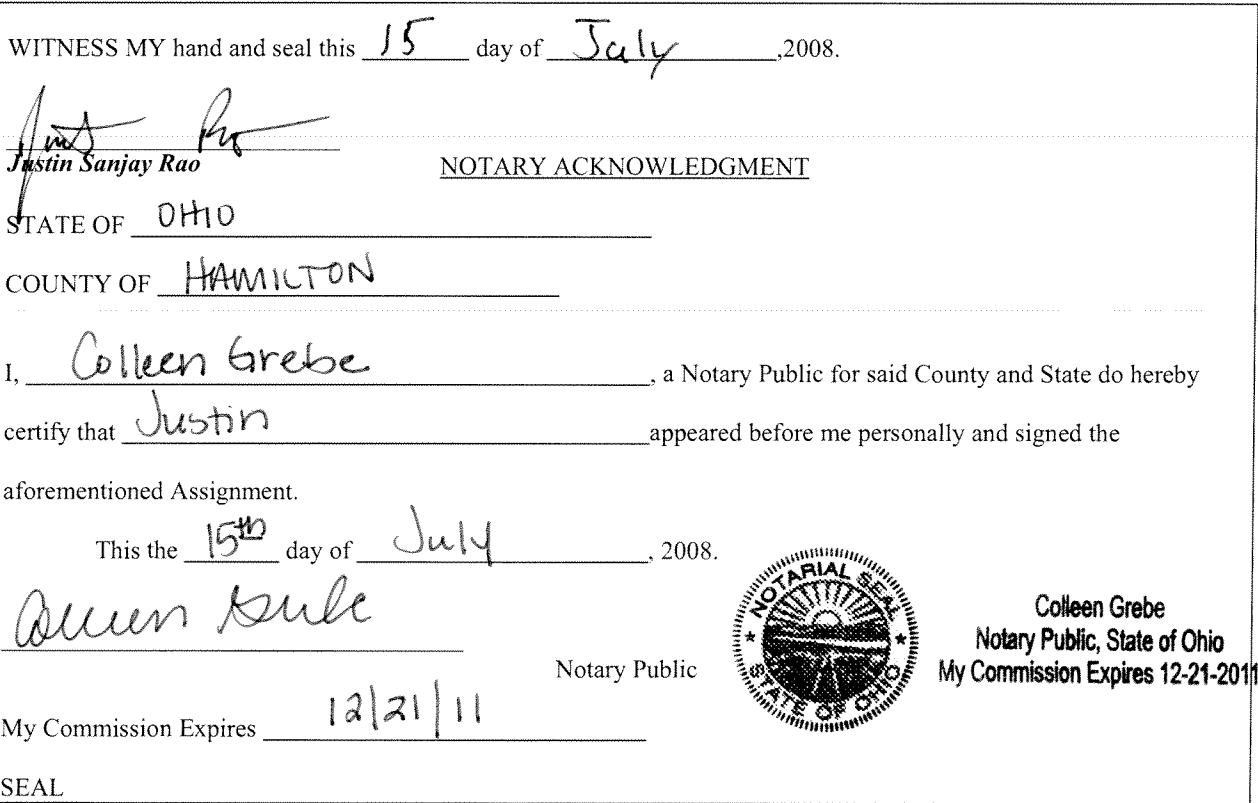 WITNESS MY hand and seal this 15 day of July ,2008.
Justin Sanjay Rao
NOTARY ACKNOWLEDGMENT
STATE OF OHIO
COUNTY OF HAMILTON
I, Colleen Grebe , a Notary Public for said County and State do hereby
certify that Justin appeared before me personally and signed the
aforementioned Assignment.
This the 15th day of July , 2008.
Colleen Grebe
Notary Public
NOTARIAL SEAL
STATE OF OHIO
Colleen Grebe
Notary Public, State of Ohio
My Commission Expires 12-21-2011
My Commission Expires 12/21/11
SEAL